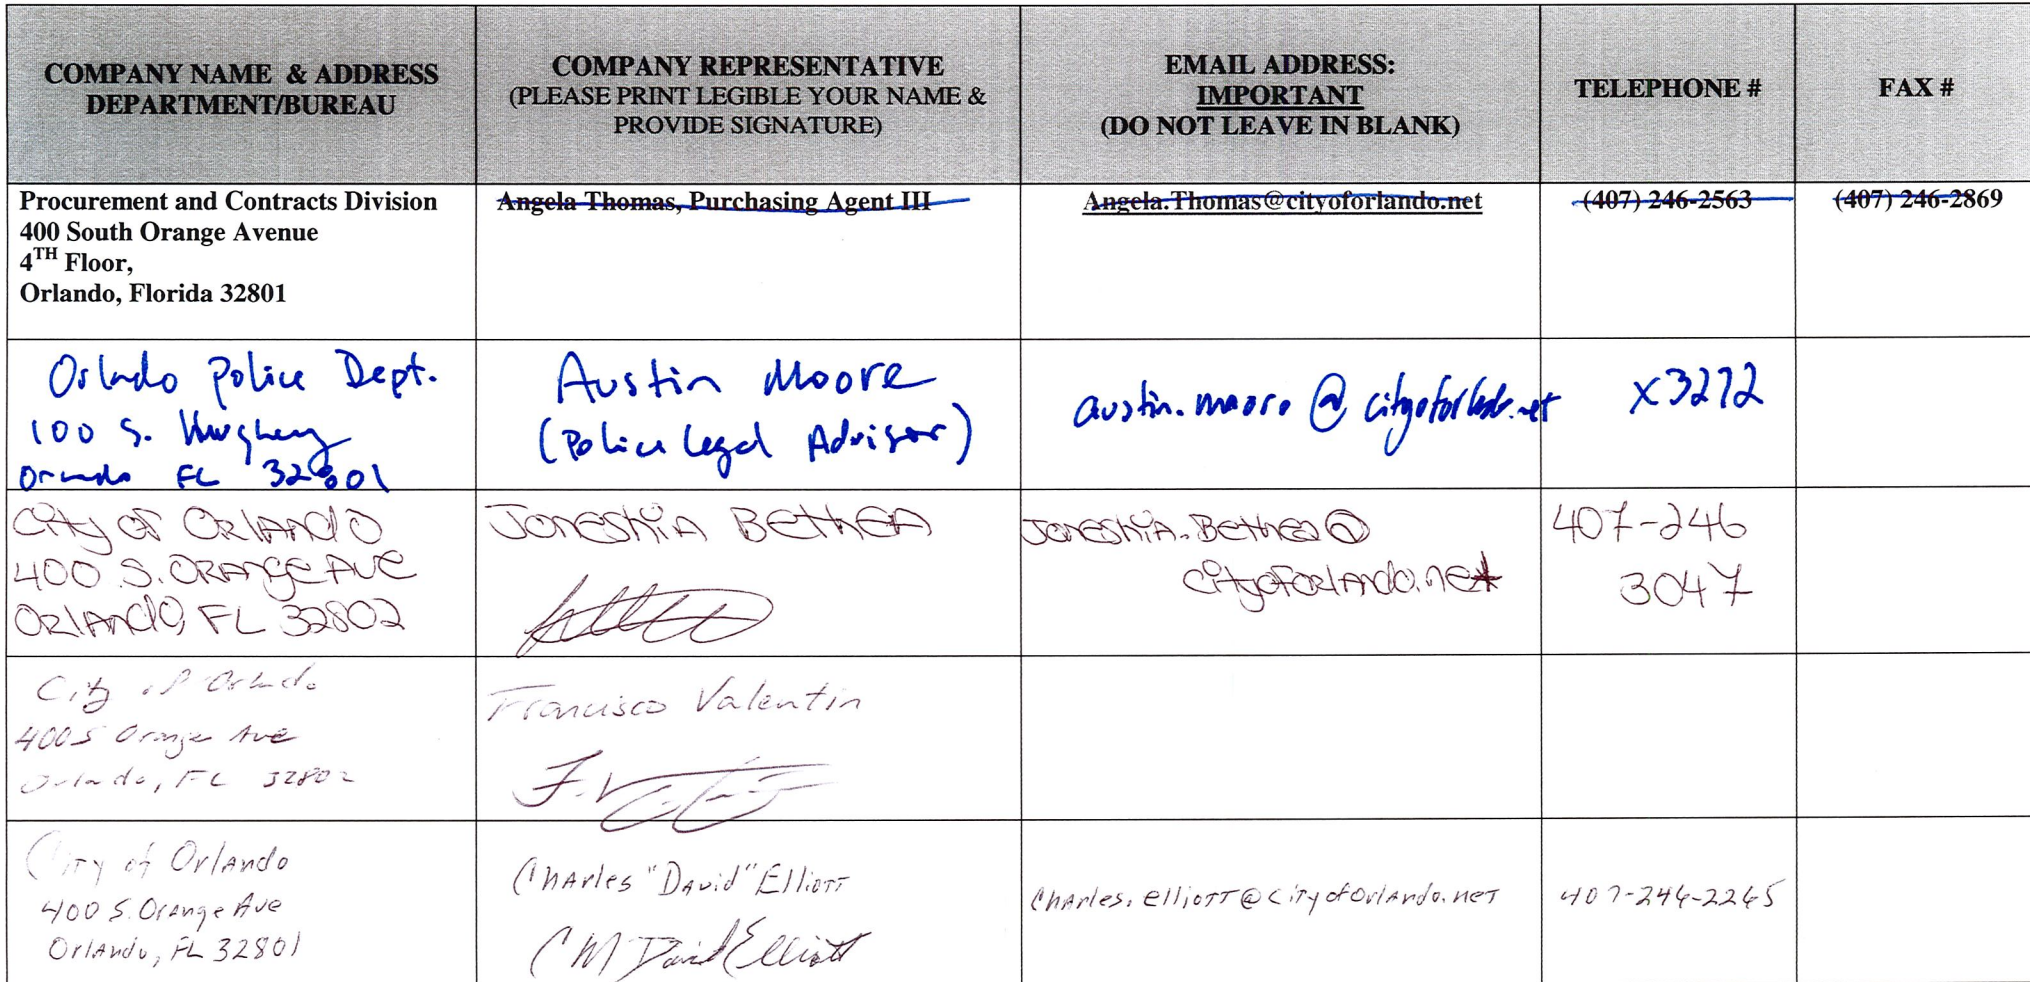 COMPANY NAME & ADDRESS
DEPARTMENT/BUREAU
COMPANY REPRESENTATIVE
(PLEASE PRINT LEGIBLE YOUR NAME &
PROVIDE SIGNATURE)
EMAIL ADDRESS:
IMPORTANT
(DO NOT LEAVE IN BLANK)
TELEPHONE #
FAX #
Procurement and Contracts Division
400 South Orange Avenue
4TH Floor,
Orlando, Florida 32801
Angela Thomas, Purchasing Agent III
Angela.Thomas@cityoforlando.net
(407) 246-2563
(407) 246-2869
Orlando Police Dept.
100 S. Hughey
Orlando FL 32801
Austin Moore
(Police Legal Advisor)
austin.moore@cityoforlando.net
x3272
City of Orlando
400 S. Orange Ave
Orlando, FL 32802
Joneshia Bethea
Joneshia.Bethea@
cityoforlando.net
407-246
3047
City of Orlando
400 S Orange Ave
Orlando, FL 32802
Francisco Valentin
City of Orlando
400 S. Orange Ave
Orlando, FL 32801
Charles "David" Elliott
C M David Elliott
Charles.elliott@cityoforlando.net
407-246-2265